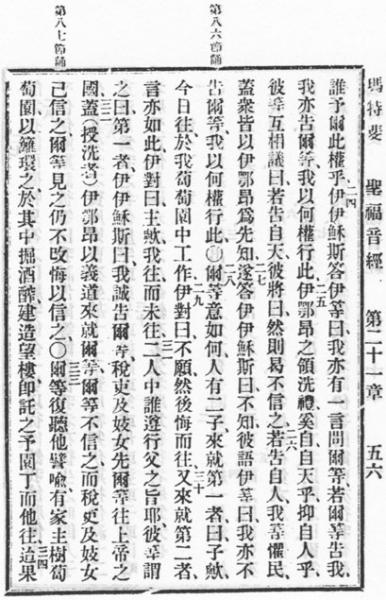 瑪特斐 聖福音經 第二十一章 五六
第八六節誦
第八七節誦
誰予爾此權乎二四伊伊穌斯答伊等曰我亦有一言問爾等若爾等告我
我亦告爾等我以何權行此二五伊鄂昂之領洗禮奚自自天乎抑自人乎
彼等互相議曰若告自天彼將曰然則曷不信之二六若告自人我等懼民
蓋衆皆以伊鄂昂爲先知二七遂答伊伊穌斯曰不知彼語伊等曰我亦不
告爾等我以何權行此〇二八爾等意如何人有二子來就第一者曰子歟
今日往於我葡萄園中工作二九伊對曰不願然後悔而往三十又來就第二者
言亦如此伊對曰主歟我往而未往三一二人中誰遵行父之旨耶彼等謂
之曰第一者伊伊穌斯曰我誠告爾等稅吏及妓女先爾等往上帝之
國三二蓋(授洗者)伊鄂昂以義道來就爾等爾等不信之而稅吏及妓女
己信之爾等見之仍不改悔以信之〇三三爾等復聽他譬喩有家主樹葡
萄園以籬環之於其中掘酒醡建造望樓卽託之予園丁而他往三四迨果